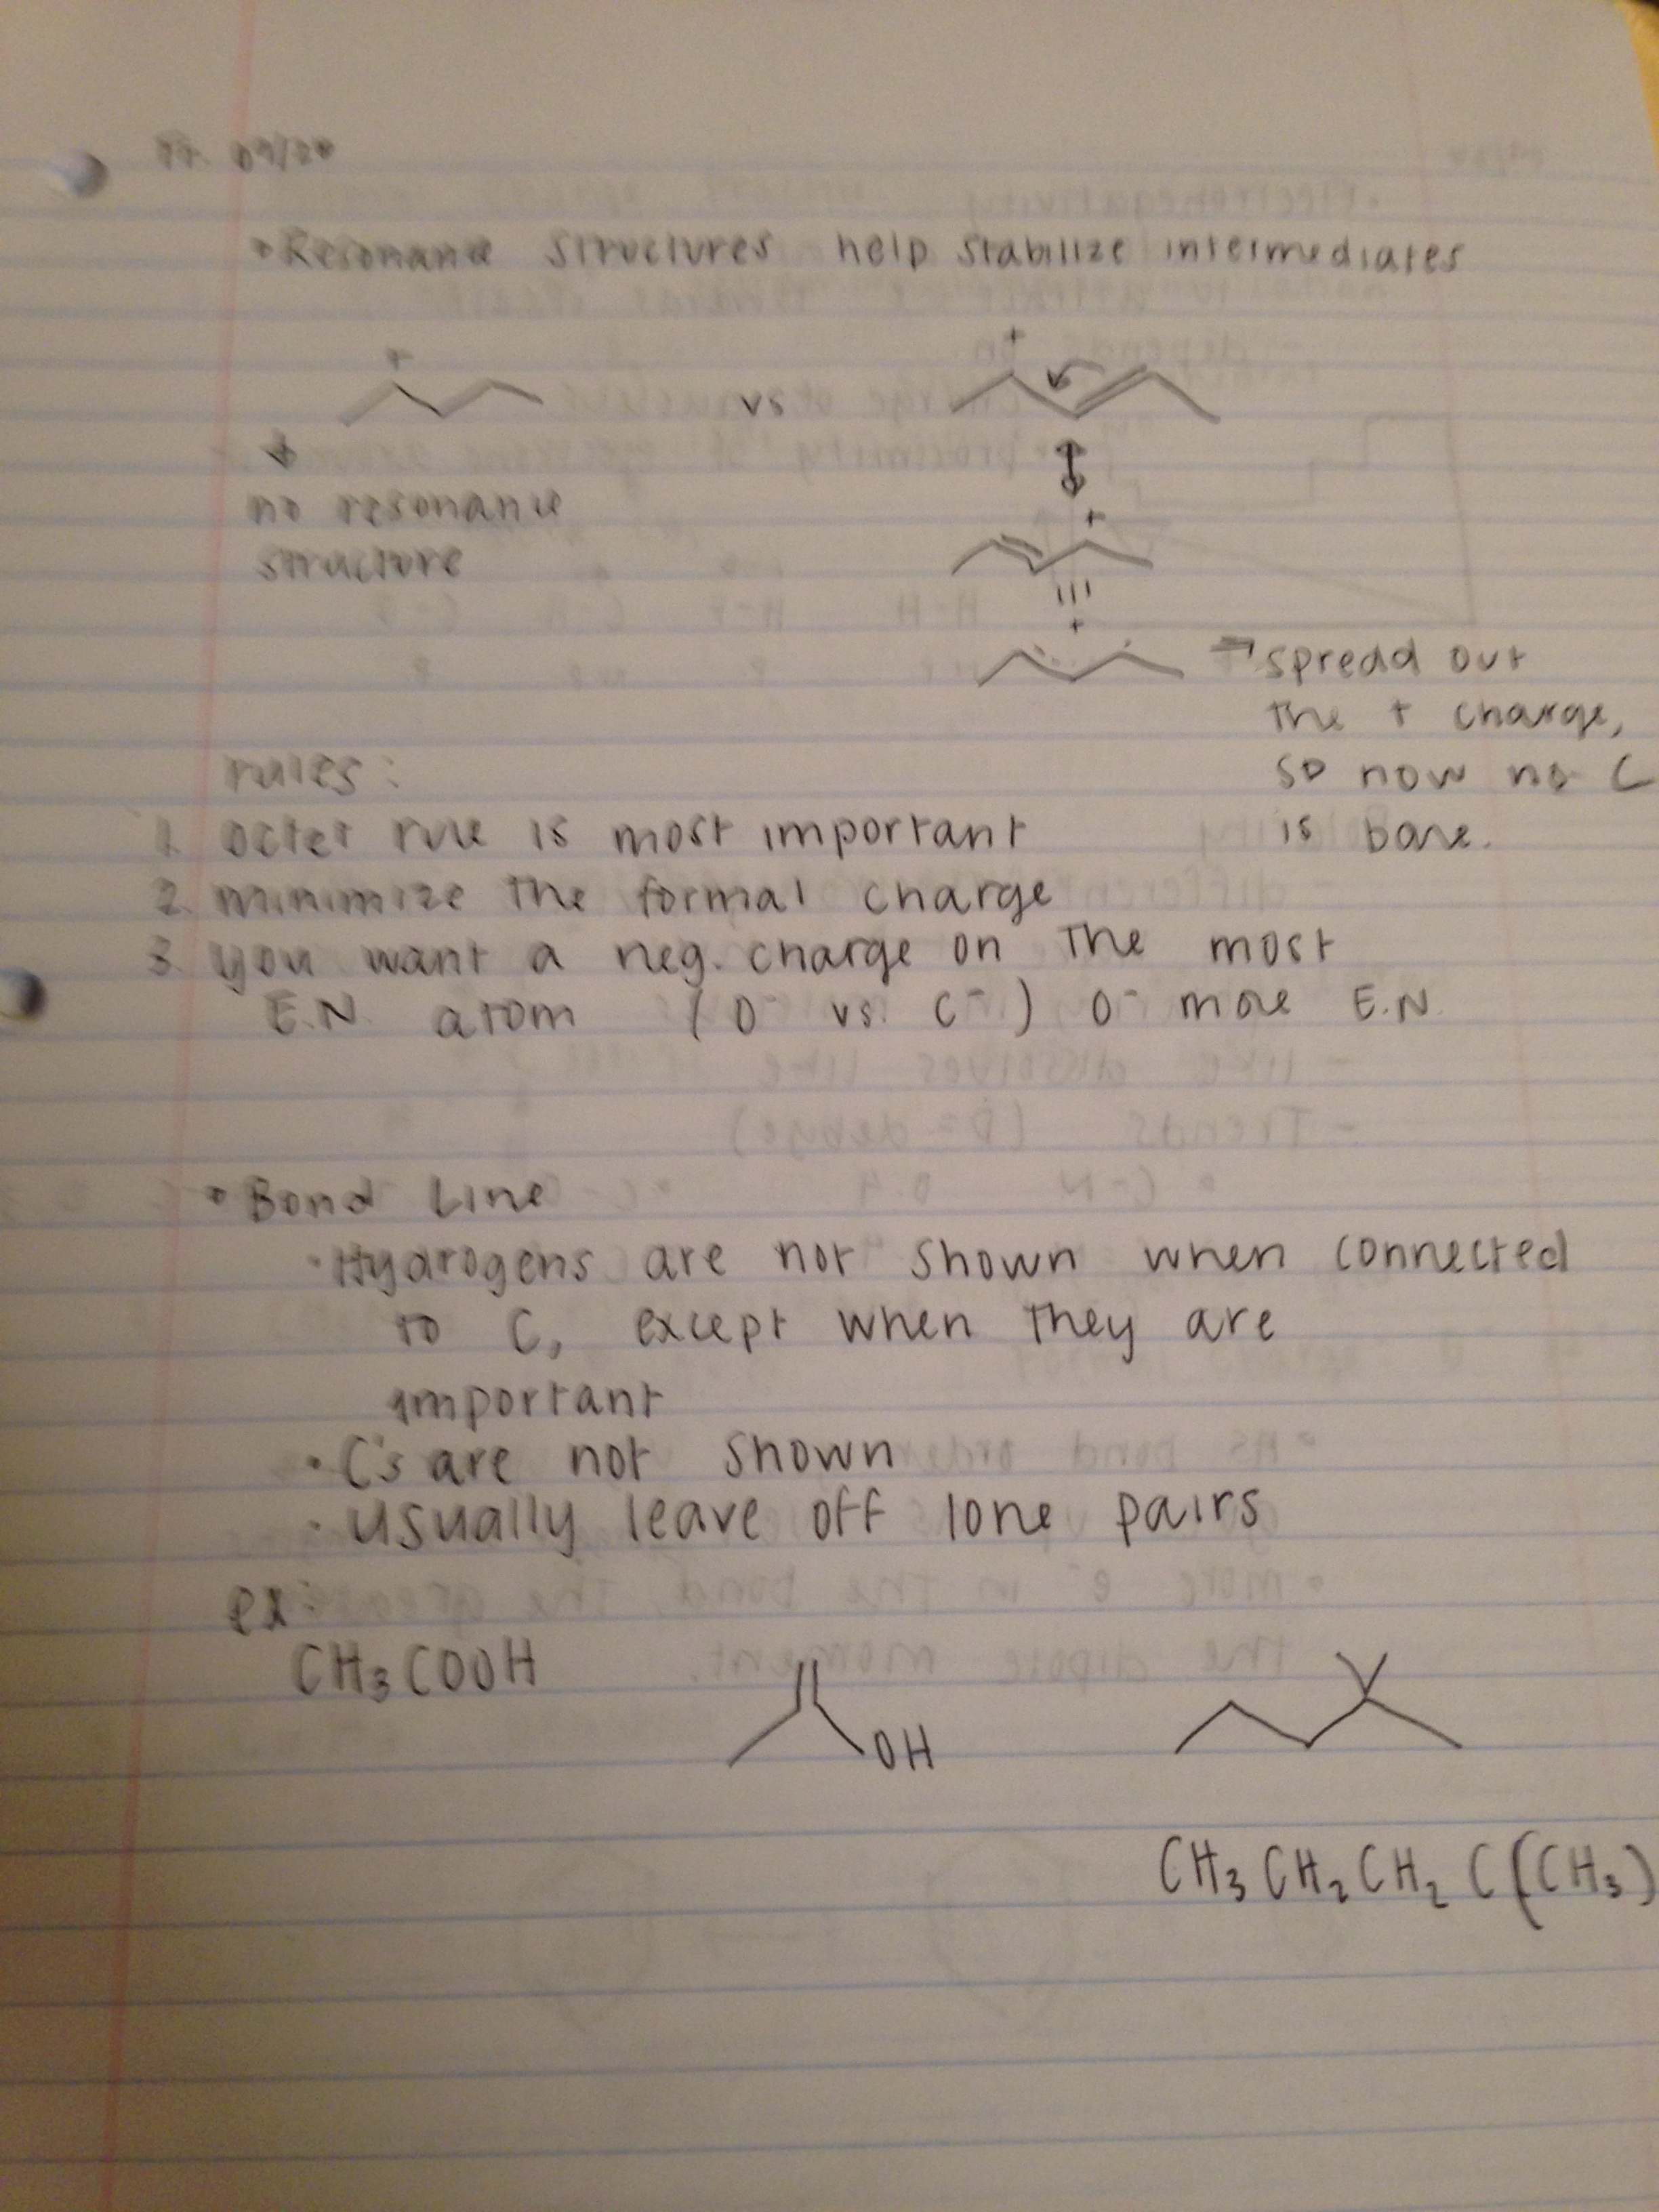 • Resonance structures help stabilize intermediates
+ +
vs
no resonance
structure
+
+
→ spread out
the + charge,
so now no C
is bare.
rules:
1. octet rule is most important
2. minimize the formal charge
3. you want a neg. charge on the most
E.N. atom (O⁻ vs. C⁻) O⁻ more E.N.
• Bond Line
• Hydrogens are not shown when connected
to C, except when they are
important
• C's are not shown
• usually leave off lone pairs
ex:
CH₃COOH
OH
CH₃CH₂CH₂C(CH₃)